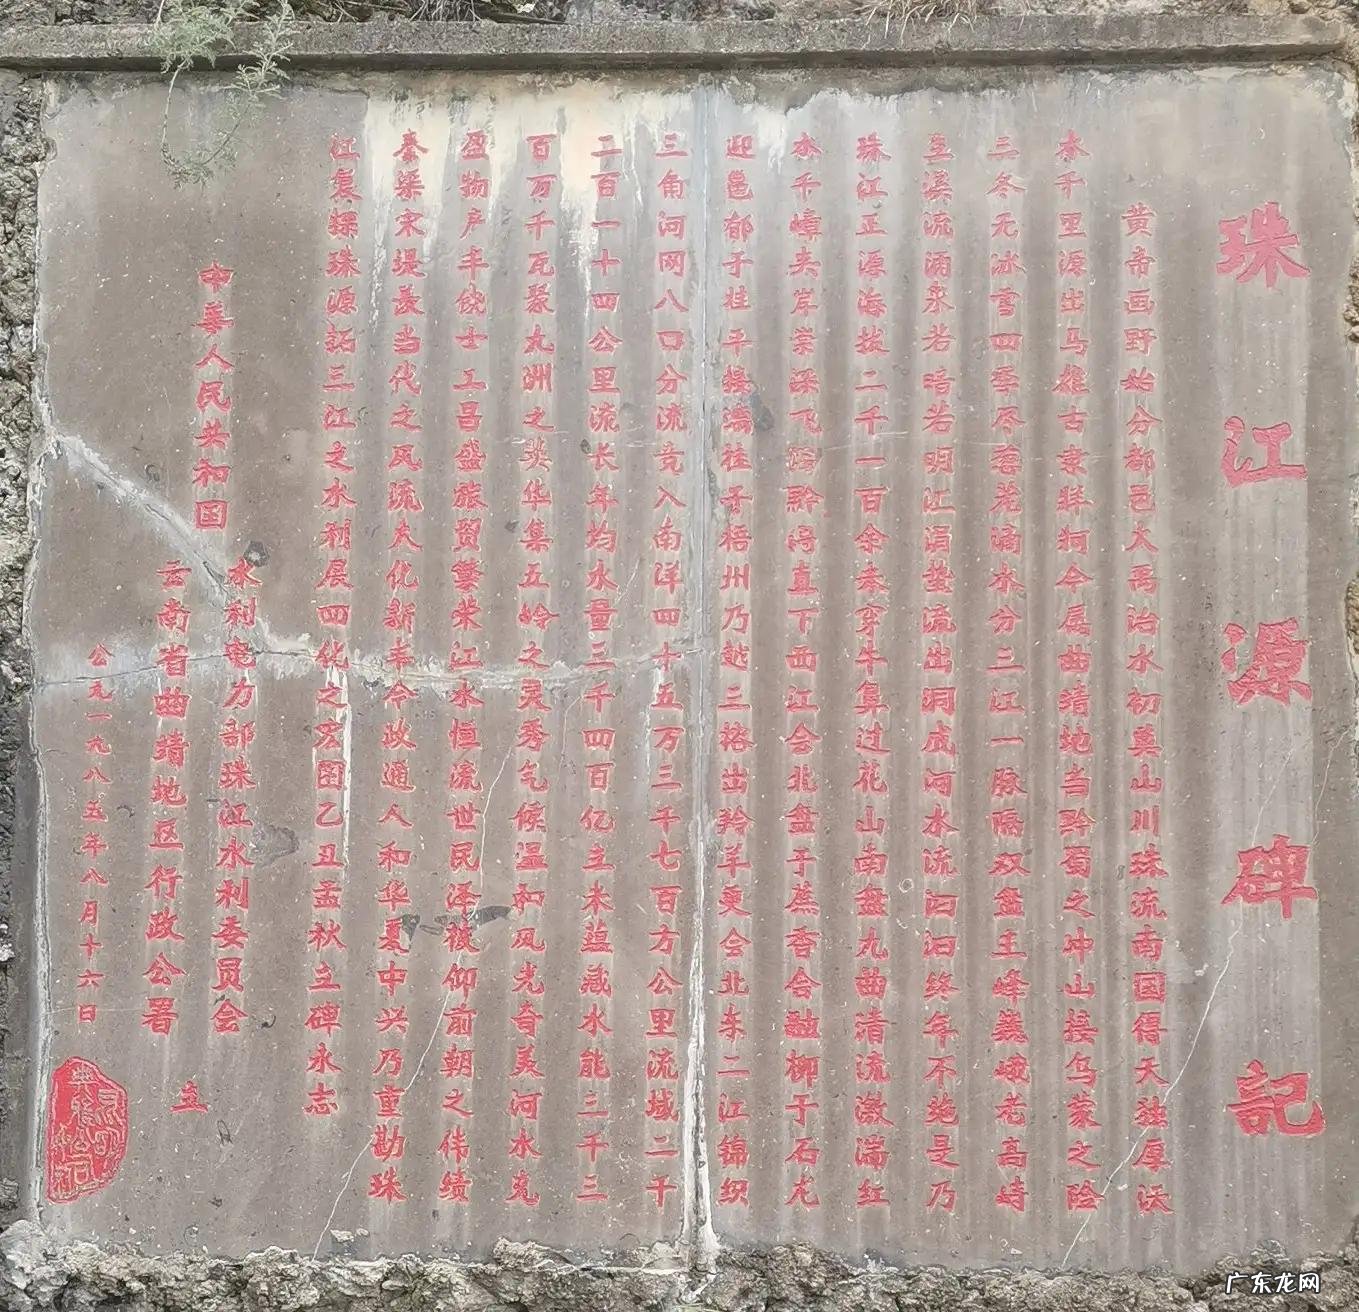 珠江源碑记
黄帝画野始分都邑大禹治水初奠山川珠流南国得天独厚沃
水千里源出马雄古隶牂牁今属曲靖地当黔蜀之冲山接乌蒙之险
三冬无冰雪四季尽葱茏滴水分三江一脉隔双盘主峰巍峨老高峙
主溪流涌泉若暗若明江涓盐流出洞成河水流汩汩终年不绝是乃
珠江正源海拔二千一百余米穿牛鼻过花山南盘九曲清流激湍红
水千嶂夹岸崇深飞泻黔浔直下西江会北盘于蔗香会融柳于石龙
迎邕郁于桂平接漓桂于梧州乃越三榕出羚羊更会北东二江锦织
三角河网八口分流竞入南洋四十五万三千七百方公里流域二千
二百一十四公里流长年均水量三千四百亿立米蕴藏水能三千三
百万千瓦聚九洲之英华集五岭之灵秀气候温和风光奇美河水充
盈物产丰饶士工昌盛旅贸繁荣江水恒流世民泽被仰前朝之伟绩
秦渠宋堤羡当代之风流大化新丰今政通人和华夏中兴乃重勘珠
江复踩珠源拓三江之水利展四化之宏图乙丑孟秋立碑永志
中华人民共和国
水利电力部珠江水利委员会
云南省曲靖地区行政公署
立
公元一九八五年八月十六日
广东龙网